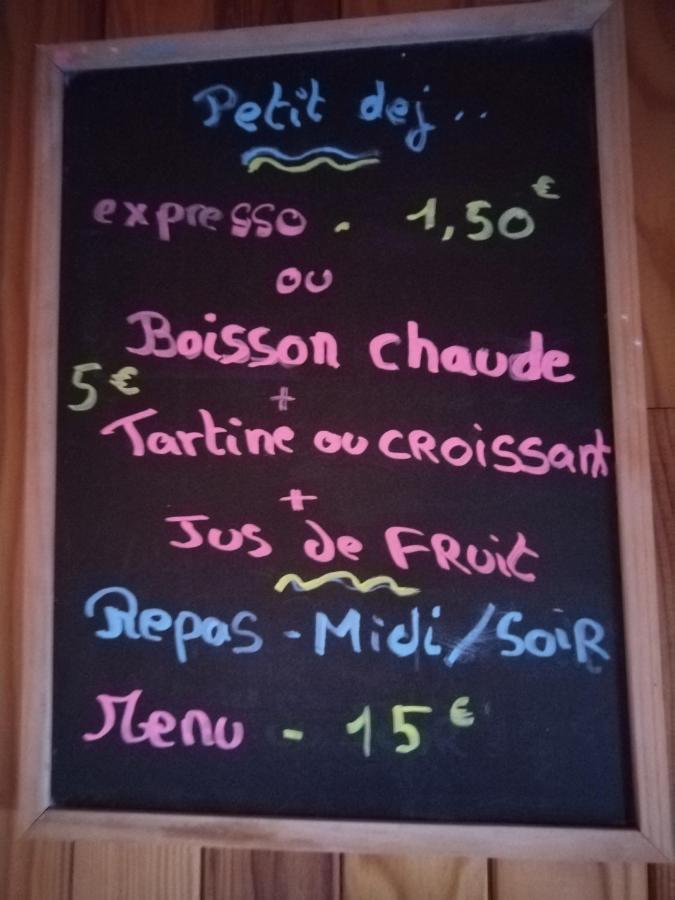 Petit dej..
expresso - 1,50€
ou
Boisson chaude
5€
+
Tartine ou CROissant
+
Jus de FRuit
Repas - Midi/SOiR
Menu - 15€